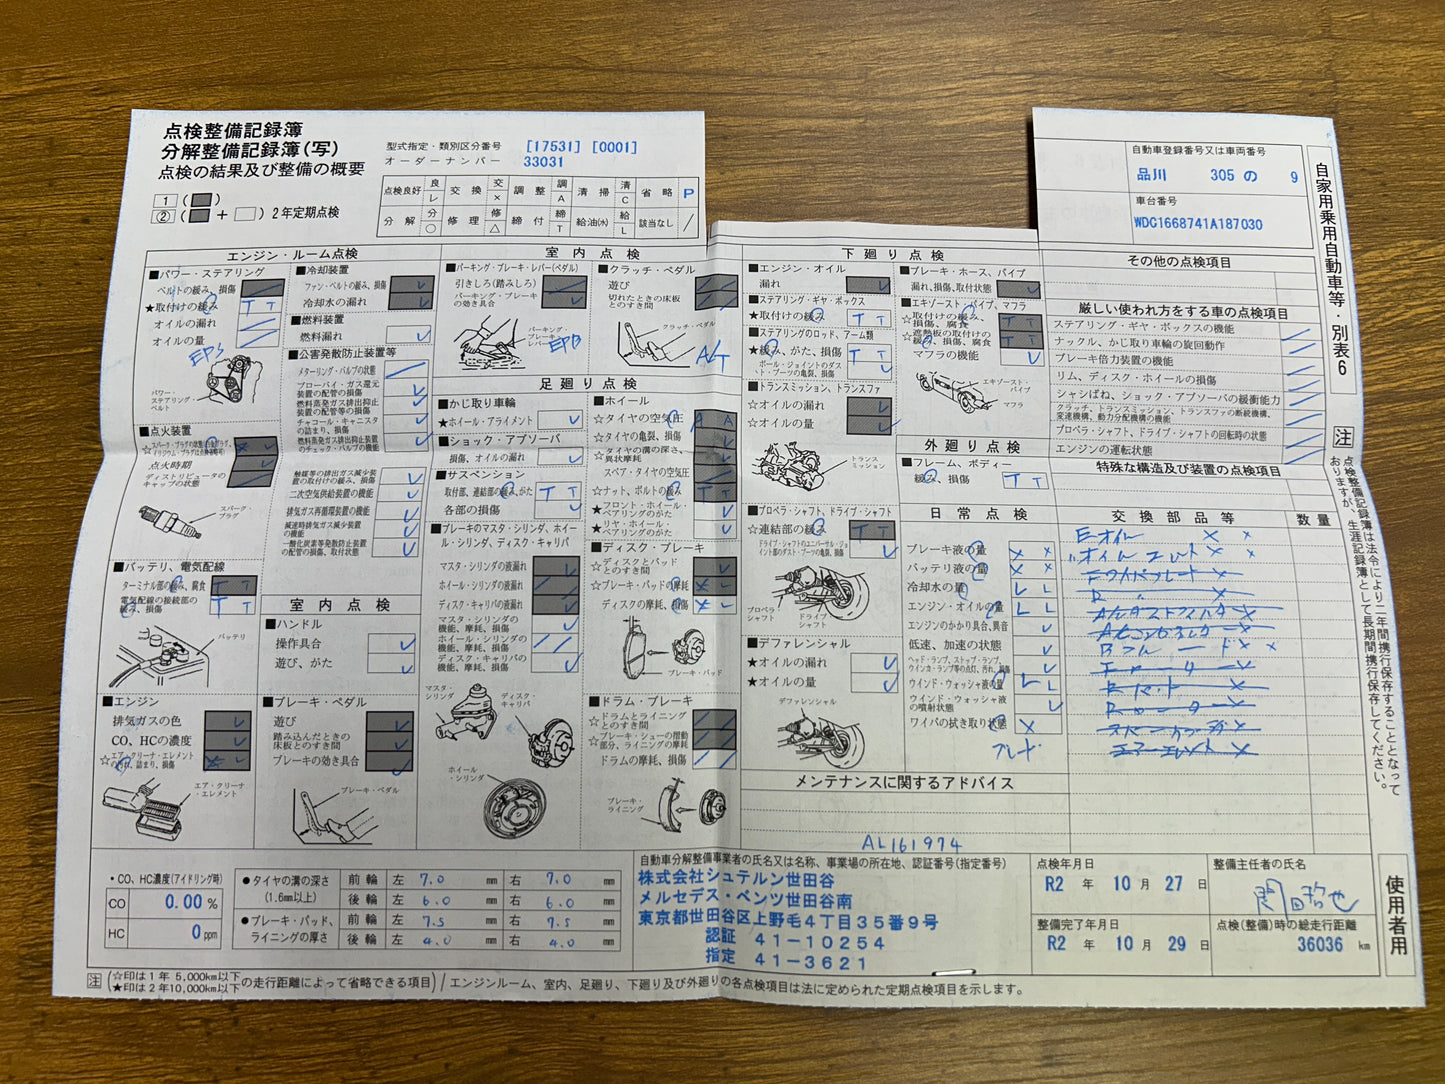 点検整備記録簿
分解整備記録簿(写)
点検の結果及び整備の概要
1 ( )
② ( + ) 2年定期点検
型式指定・類別区分番号 [17531] [0001]
オーダーナンバー 33031
点検良好 レ 交換 × 調整 A 清掃 C 省略 P
分解 ○ 修理 △ 締付 T 給油(水) L 該当なし /
自動車登録番号又は車両番号
品川 305 の 9
車台番号
WDC1668741A187030
自家用乗用自動車等・別表6
エンジン・ルーム点検
■パワー・ステアリング
ベルトの緩み、損傷
★取付けの緩み T T
オイルの漏れ
オイルの量
EPS
パワー・ステアリング・ベルト
■点火装置
点火時期
ディストリビュータのキャップの状態
スパーク・プラグ
■バッテリ、電気配線
ターミナル部の緩み、腐食 T T
電気配線の接続部の緩み、損傷 T T
バッテリ
■エンジン
排気ガスの色
CO、HCの濃度
☆エア・クリーナ・エレメントの汚れ、詰まり、損傷
エア・クリーナ・エレメント
■冷却装置
ファン・ベルトの緩み、損傷
冷却水の漏れ
■燃料装置
燃料漏れ
■公害発散防止装置等
メターリング・バルブの状態
ブローバイ・ガス還元装置の配管の損傷
燃料蒸発ガス排出抑止装置の配管等の損傷
チャコール・キャニスタの詰まり、損傷
燃料蒸発ガス排出抑止装置のチェック・バルブの機能
触媒等の排出ガス減少装置の取付けの緩み、損傷
二次空気供給装置の機能
排気ガス再循環装置の機能
減速時排気ガス減少装置の機能
一酸化炭素等発散防止装置の配管の損傷、取付状態
室内点検
■ハンドル
操作具合
遊び、がた
■ブレーキ・ペダル
遊び
踏み込んだときの床板とのすき間
ブレーキの効き具合
ブレーキ・ペダル
室内点検
■パーキング・ブレーキ・レバー(ペダル)
引きしろ(踏みしろ)
パーキング・ブレーキの効き具合
パーキング・ブレーキ・レバー
EPB
■クラッチ・ペダル
遊び
切れたときの床板とのすき間
クラッチ・ペダル
A/T
足廻り点検
■かじ取り車輪
★ホイール・アライメント
■ショック・アブソーバ
損傷、オイルの漏れ
■サスペンション
取付部、連結部の緩み、がた T T
各部の損傷
■ブレーキのマスタ・シリンダ、ホイール・シリンダ、ディスク・キャリパ
マスタ・シリンダの液漏れ
ホイール・シリンダの液漏れ
ディスク・キャリパの液漏れ
マスタ・シリンダの機能、摩耗、損傷
ホイール・シリンダの機能、摩耗、損傷
ディスク・キャリパの機能、摩耗、損傷
マスタ・シリンダ
ディスク・キャリパ
ホイール・シリンダ
■ホイール
☆タイヤの空気圧 A A
☆タイヤの亀裂、損傷
☆タイヤの溝の深さ、異状摩耗
スペア・タイヤの空気圧
☆ナット、ボルトの緩み T T
★フロント・ホイール・ベアリングのがた
★リヤ・ホイール・ベアリングのがた
■ディスク・ブレーキ
☆ディスクとパッドとのすき間
☆ブレーキ・パッドの摩耗
ディスクの摩耗、損傷
ブレーキ・パッド
■ドラム・ブレーキ
☆ドラムとライニングとのすき間
☆ブレーキ・シューの摺動部分、ライニングの摩耗
ドラムの摩耗、損傷
ブレーキ・ライニング
下廻り点検
■エンジン・オイル
漏れ
■ステアリング・ギヤ・ボックス
★取付けの緩み T T
■ステアリングのロッド、アーム類
★緩み、がた、損傷 T T
ボール・ジョイントのダスト・ブーツの亀裂、損傷
■トランスミッション、トランスファ
☆オイルの漏れ
☆オイルの量
トランスミッション
■プロペラ・シャフト、ドライブ・シャフト
☆連結部の緩み T T
ドライブ・シャフトのユニバーサル・ジョイント部のダスト・ブーツの亀裂、損傷
プロペラ・シャフト
ドライブ・シャフト
■デファレンシャル
★オイルの漏れ
★オイルの量
デファレンシャル
■ブレーキ・ホース、パイプ
漏れ、損傷、取付状態
■エキゾースト・パイプ、マフラ
☆取付けの緩み、損傷、腐食 T T
☆遮熱板の取付けの緩み、損傷、腐食 T T
マフラの機能
エキゾースト・パイプ
マフラ
外廻り点検
■フレーム、ボディー
緩み、損傷 T T
日常点検
ブレーキ液の量 × ×
バッテリ液の量 × ×
冷却水の量 L L
エンジン・オイルの量 L L
エンジンのかかり具合、異音
低速、加速の状態
ヘッド・ランプ、ストップ・ランプ、ウインカ・ランプ等の点灯、汚れ、損傷
ウインド・ウォッシャ液の量 L L
ウインド・ウォッシャ液の噴射状態
ワイパの拭き取り状態 ×
ブレード
メンテナンスに関するアドバイス
AL161974
その他の点検項目
厳しい使われ方をする車の点検項目
ステアリング・ギヤ・ボックスの機能
ナックル、かじ取り車輪の旋回動作
ブレーキ倍力装置の機能
リム、ディスク・ホイールの損傷
シャシばね、ショック・アブソーバの緩衝能力
クラッチ、トランスミッション、トランスファの断続機構、変速機構、動力分配機構の機能
プロペラ・シャフト、ドライブ・シャフトの回転時の状態
エンジンの運転状態
特殊な構造及び装置の点検項目
交換部品等 数量
E-オイル × ×
〃オイルエレメント × ×
注 点検整備記録簿は法令により二年間携行保存することとなっておりますが、生涯記録簿として長期間携行保存してください。
・CO、HC濃度(アイドリング時)
CO 0.00 %
HC 0 ppm
●タイヤの溝の深さ (1.6mm以上)
前輪 左 7.0 mm 右 7.0 mm
後輪 左 6.0 mm 右 6.0 mm
●ブレーキ・パッド、ライニングの厚さ
前輪 左 7.5 mm 右 7.5 mm
後輪 左 4.0 mm 右 4.0 mm
自動車分解整備事業者の氏名又は名称、事業場の所在地、認証番号(指定番号)
株式会社シュテルン世田谷
メルセデス・ベンツ世田谷南
東京都世田谷区上野毛4丁目35番9号
認証 41-10254
指定 41-3621
点検年月日
R2 年 10 月 27 日
整備完了年月日
R2 年 10 月 29 日
整備主任者の氏名
点検(整備)時の総走行距離
36036 km
使用者用
注 (☆印は1年 5,000km以下 ★印は2年10,000km以下 の走行距離によって省略できる項目) / エンジンルーム、室内、足廻り、下廻り及び外廻りの各点検項目は法に定められた定期点検項目を示します。